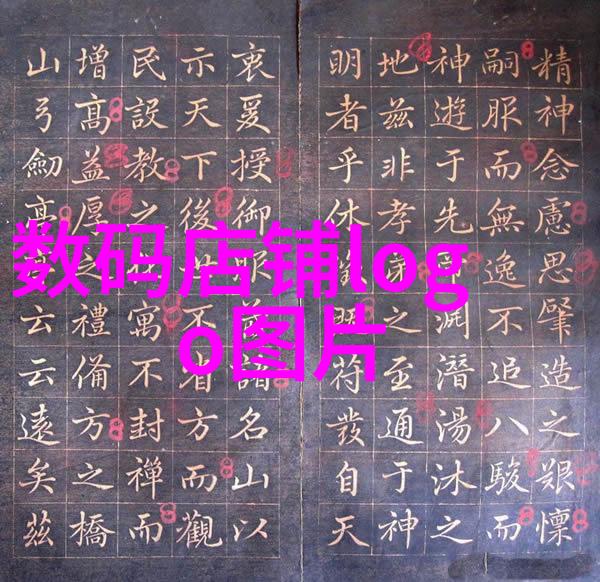 数码店铺log
o图片
精神念慮思肇造之艱懍
嗣服而無逸不追八駿而
神遊于先淵潛湯沐之
地茲非孝之至通于神
明者乎休符發自天
衷爰授御諸名山以
示天下後不省方而觀
民設教之寓不封禪而
增高益厚之禮備方之橋
山弓劍亭云云遠矣茲